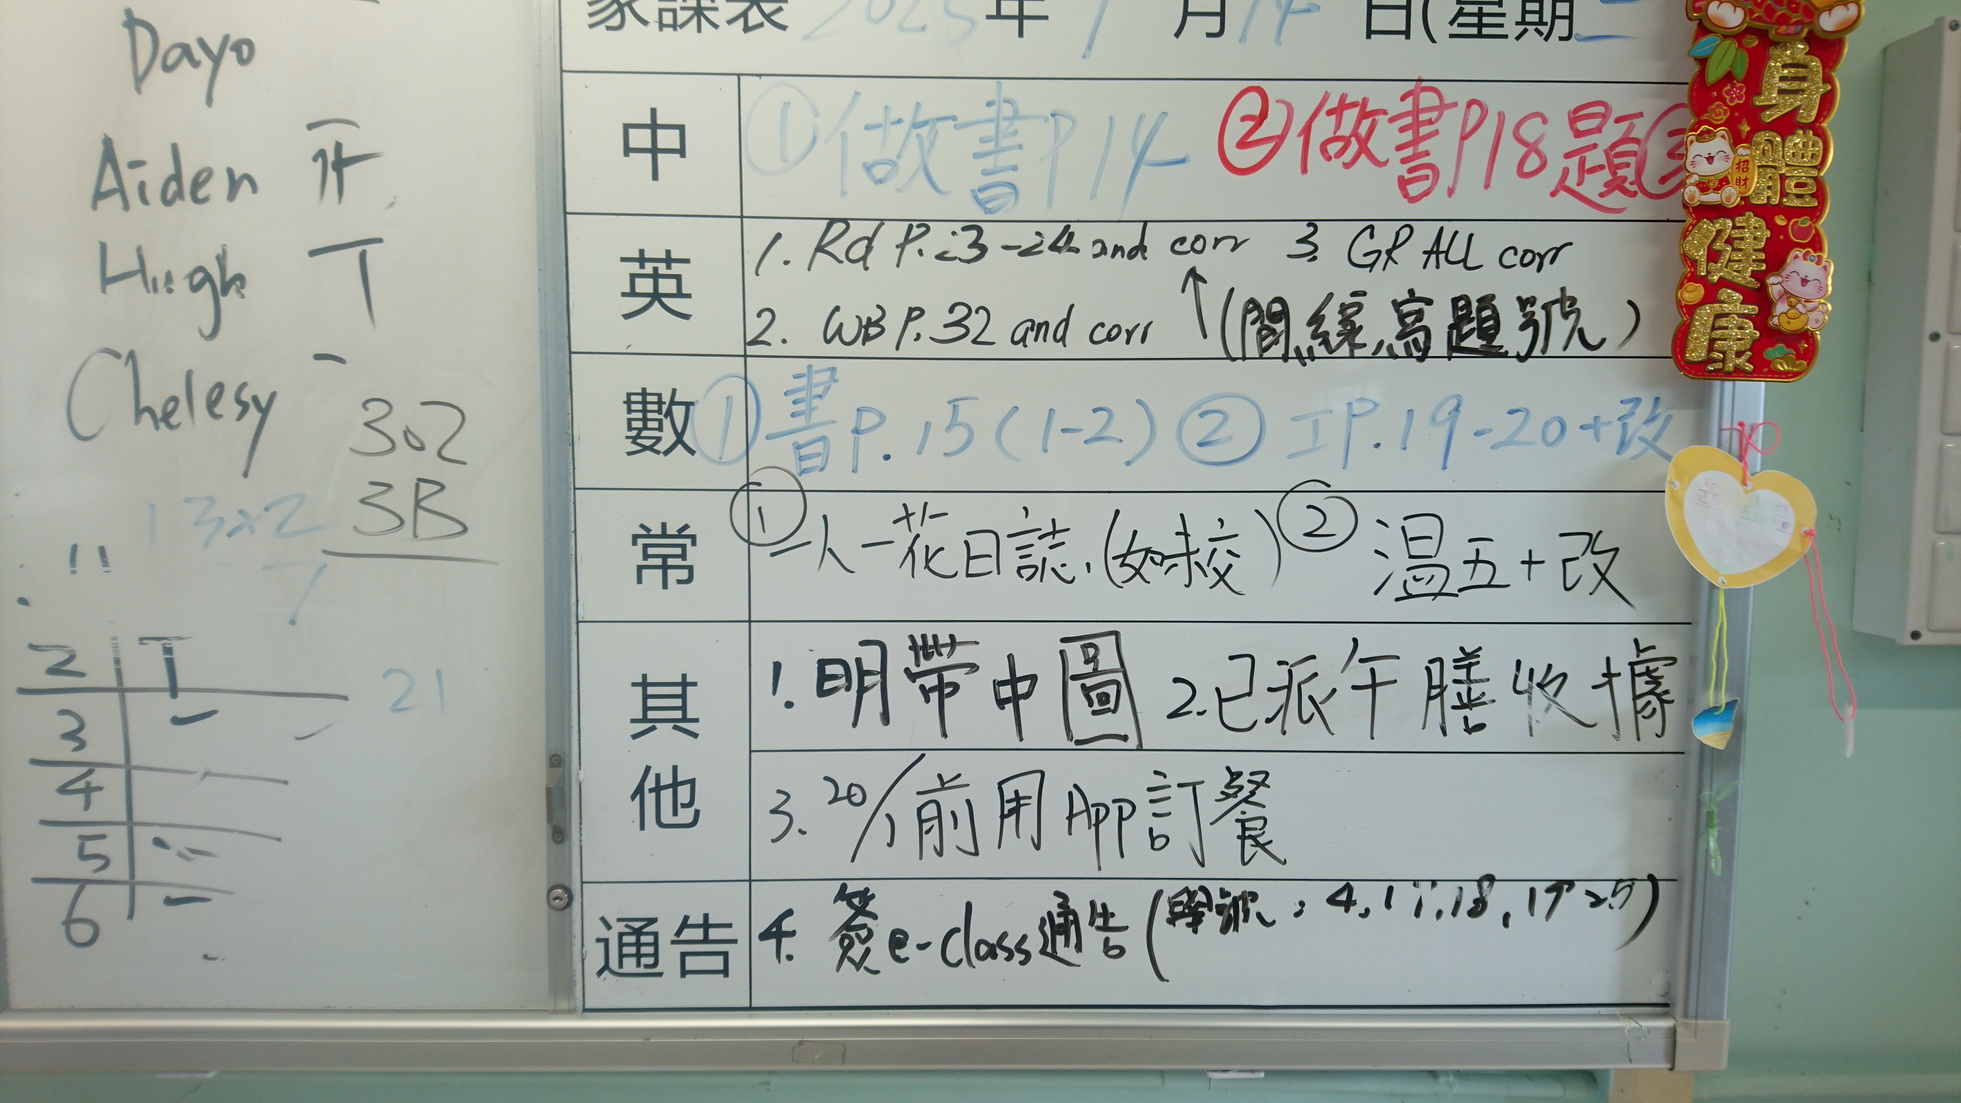 Dayo
Aiden
Hugh
Chelesy
302
3B
13x2
7
21
2
3
4
5
6
家課表 2025年1月14日(星期二
中 ①做書P14 ②做書P18題
英 1. Rd P.23-24 and corr 3. GR ALL corr
2. WB P.32 and corr ↑(間線,寫題號)
數 ①書P.15(1-2) ②工P.19-20+改
常 ①一人一花日誌.(如校) ②溫五+改
其他 1.明帶中圖 2.已派午膳收據
3. 20/1前用App訂餐
通告 4. 簽e-class通告(
身體健康
招財